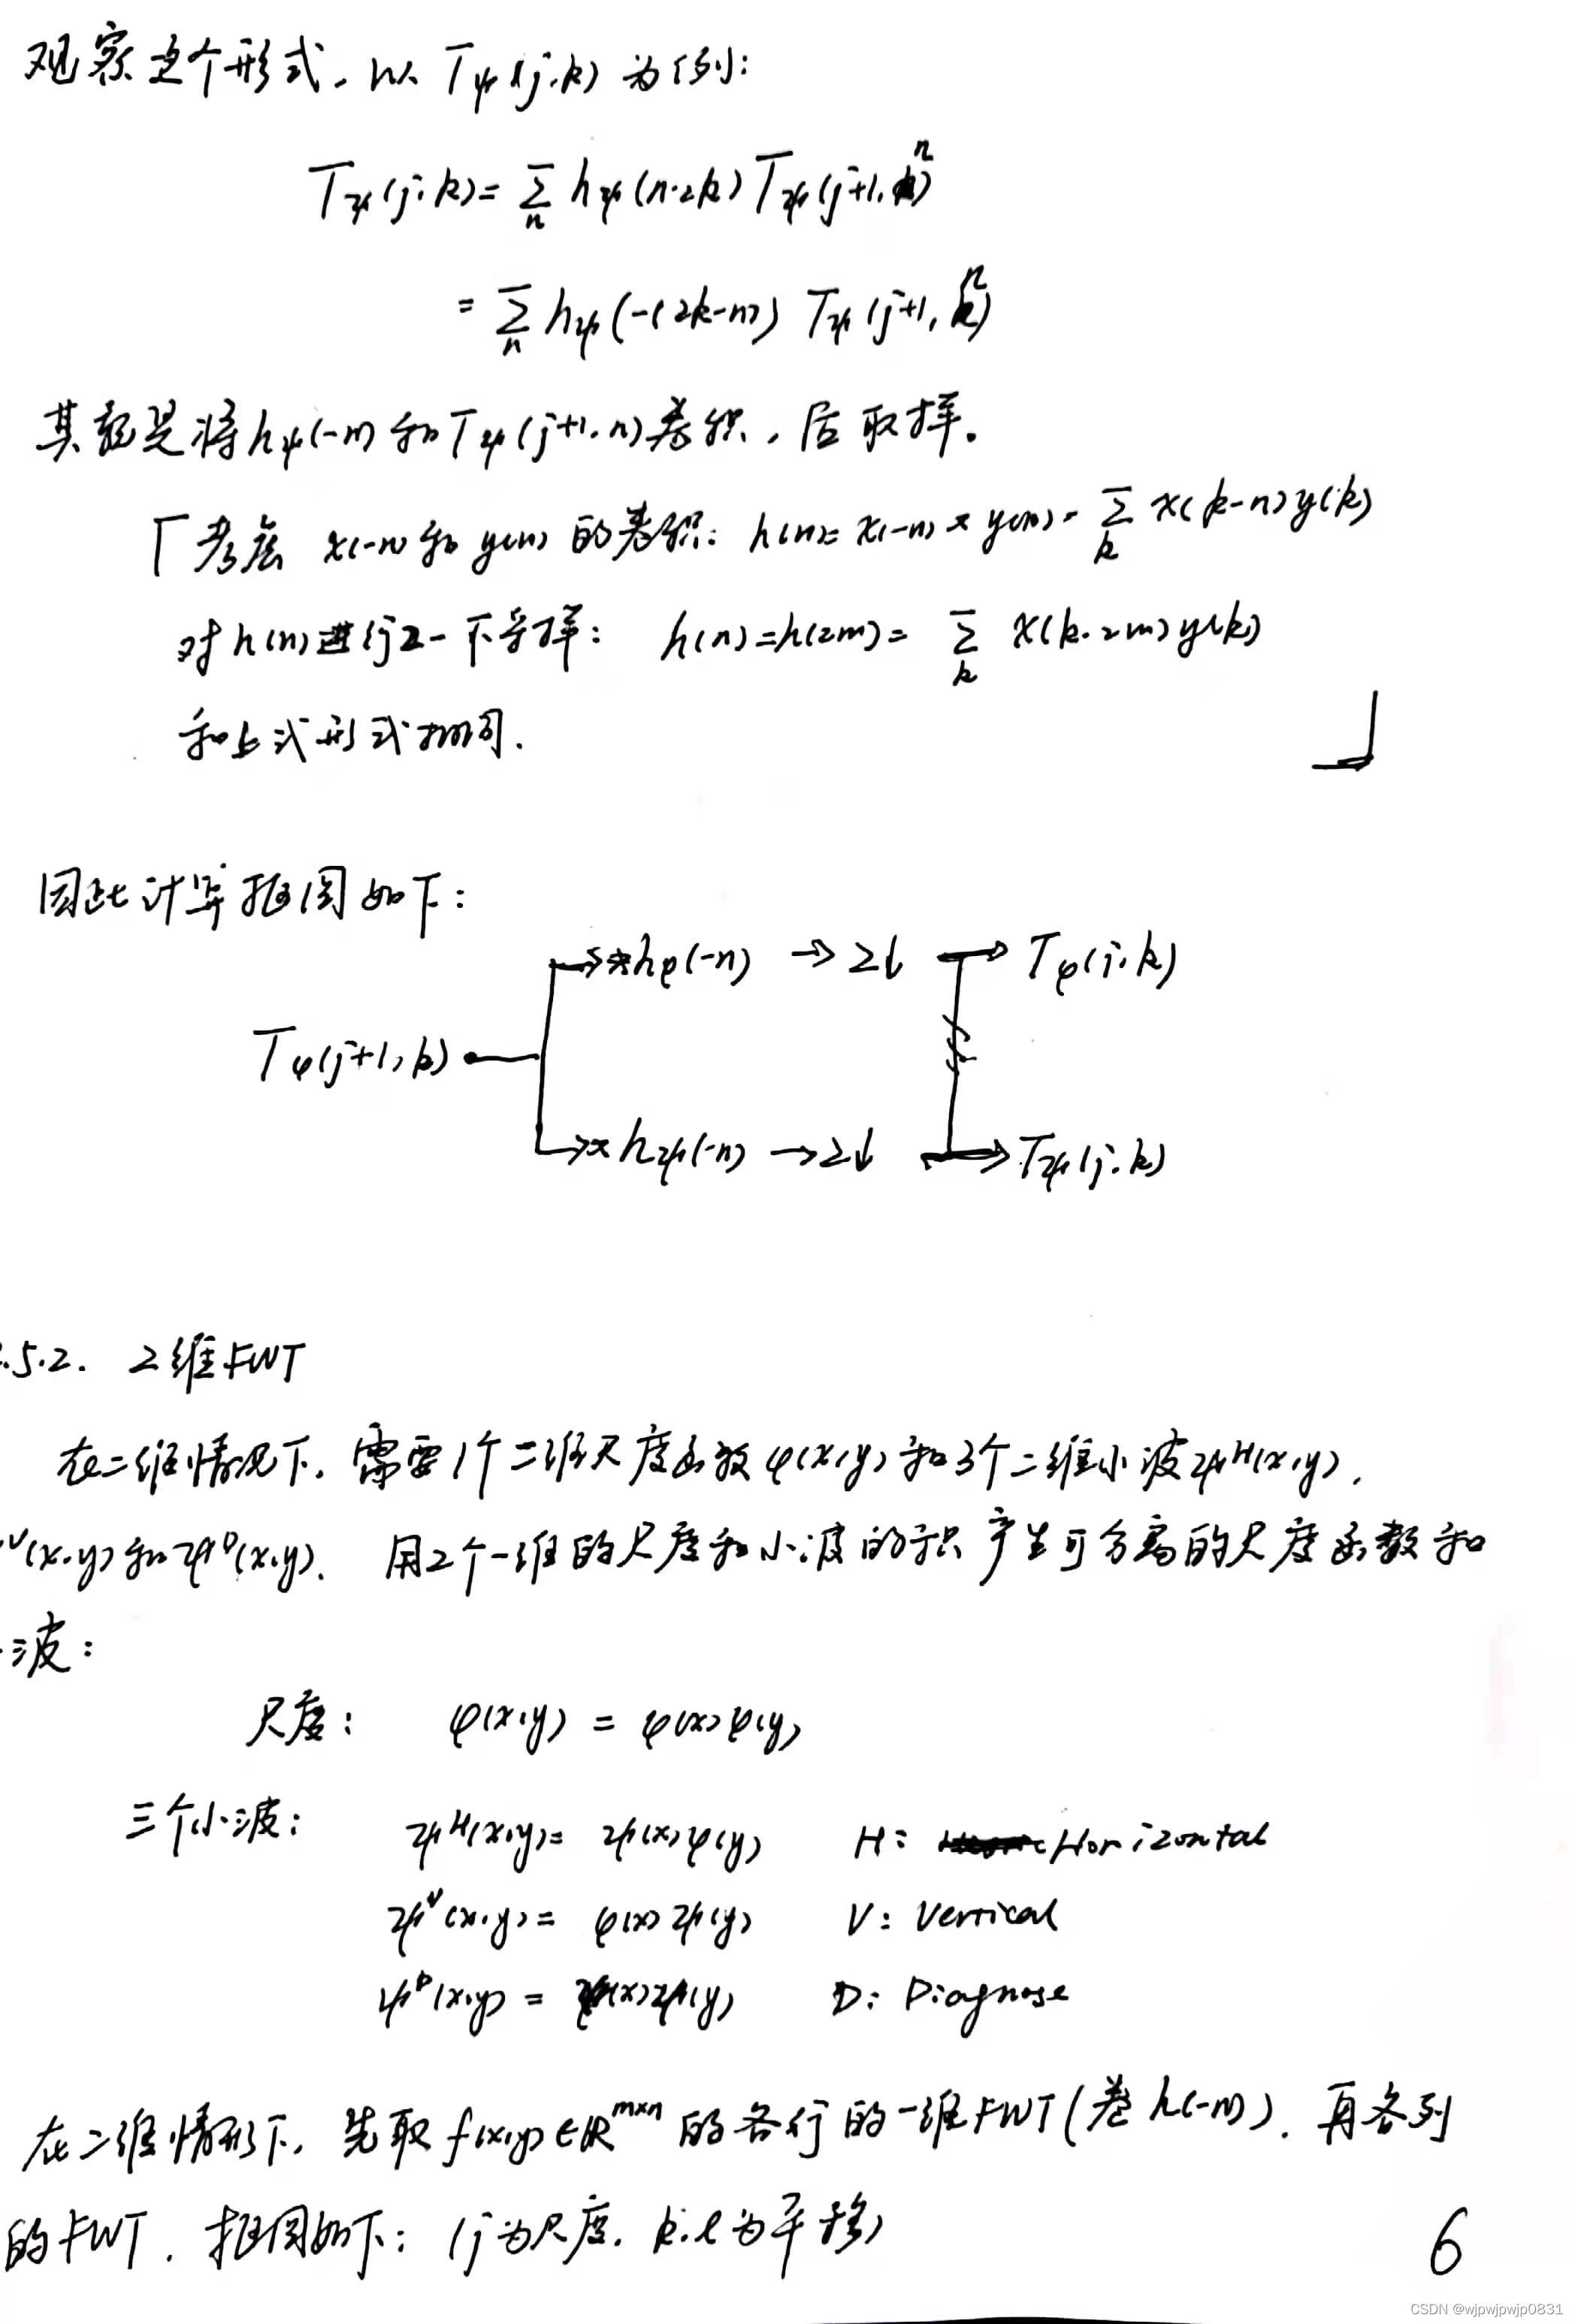 观察这个形式. 以 Tψ(j,k) 为例:
Tψ(j,k) = Σn hψ(n-2k) Tψ(j+1, n)
= Σn hψ(-(2k-n)) Tψ(j+1, n)
其就是将 hψ(-n) 和 Tψ(j+1,n) 卷积, 后取样.
「考虑 x(-n) 和 y(n) 的卷积: h(n) = x(-n) * y(n) = Σk x(k-n)y(k)
对 h(n) 进行 2- 下采样: h(n) = h(2m) = Σk x(k-2m)y(k)
和上式形式相同. 」
因此计算框图如下:
→ *hφ(-n) → 2↓ → Tφ(j,k)
Tφ(j+1,k)
→ *hψ(-n) → 2↓ → Tψ(j,k)
.5.2. 2维FWT
在二维情况下, 需要1个二维尺度函数 φ(x,y) 和3个二维小波 ψH(x,y),
V(x,y) 和 ψD(x,y). 用2个一维的尺度和小波的积产生可分离的尺度函数和
波:
尺度: φ(x,y) = φ(x)φ(y)
三个小波: ψH(x,y) = ψ(x)φ(y) H: Horizontal
ψV(x,y) = φ(x)ψ(y) V: Vertical
ψD(x,y) = ψ(x)ψ(y) D: Diagnose
在二维情形下, 先取 f(x,y)∈ℝm×n 的各行的一维FWT (卷 h(-n)). 再各列
的FWT. 框图如下: (j为尺度. k,l为平移)
6
CSDN @wjpwjpwjp0831